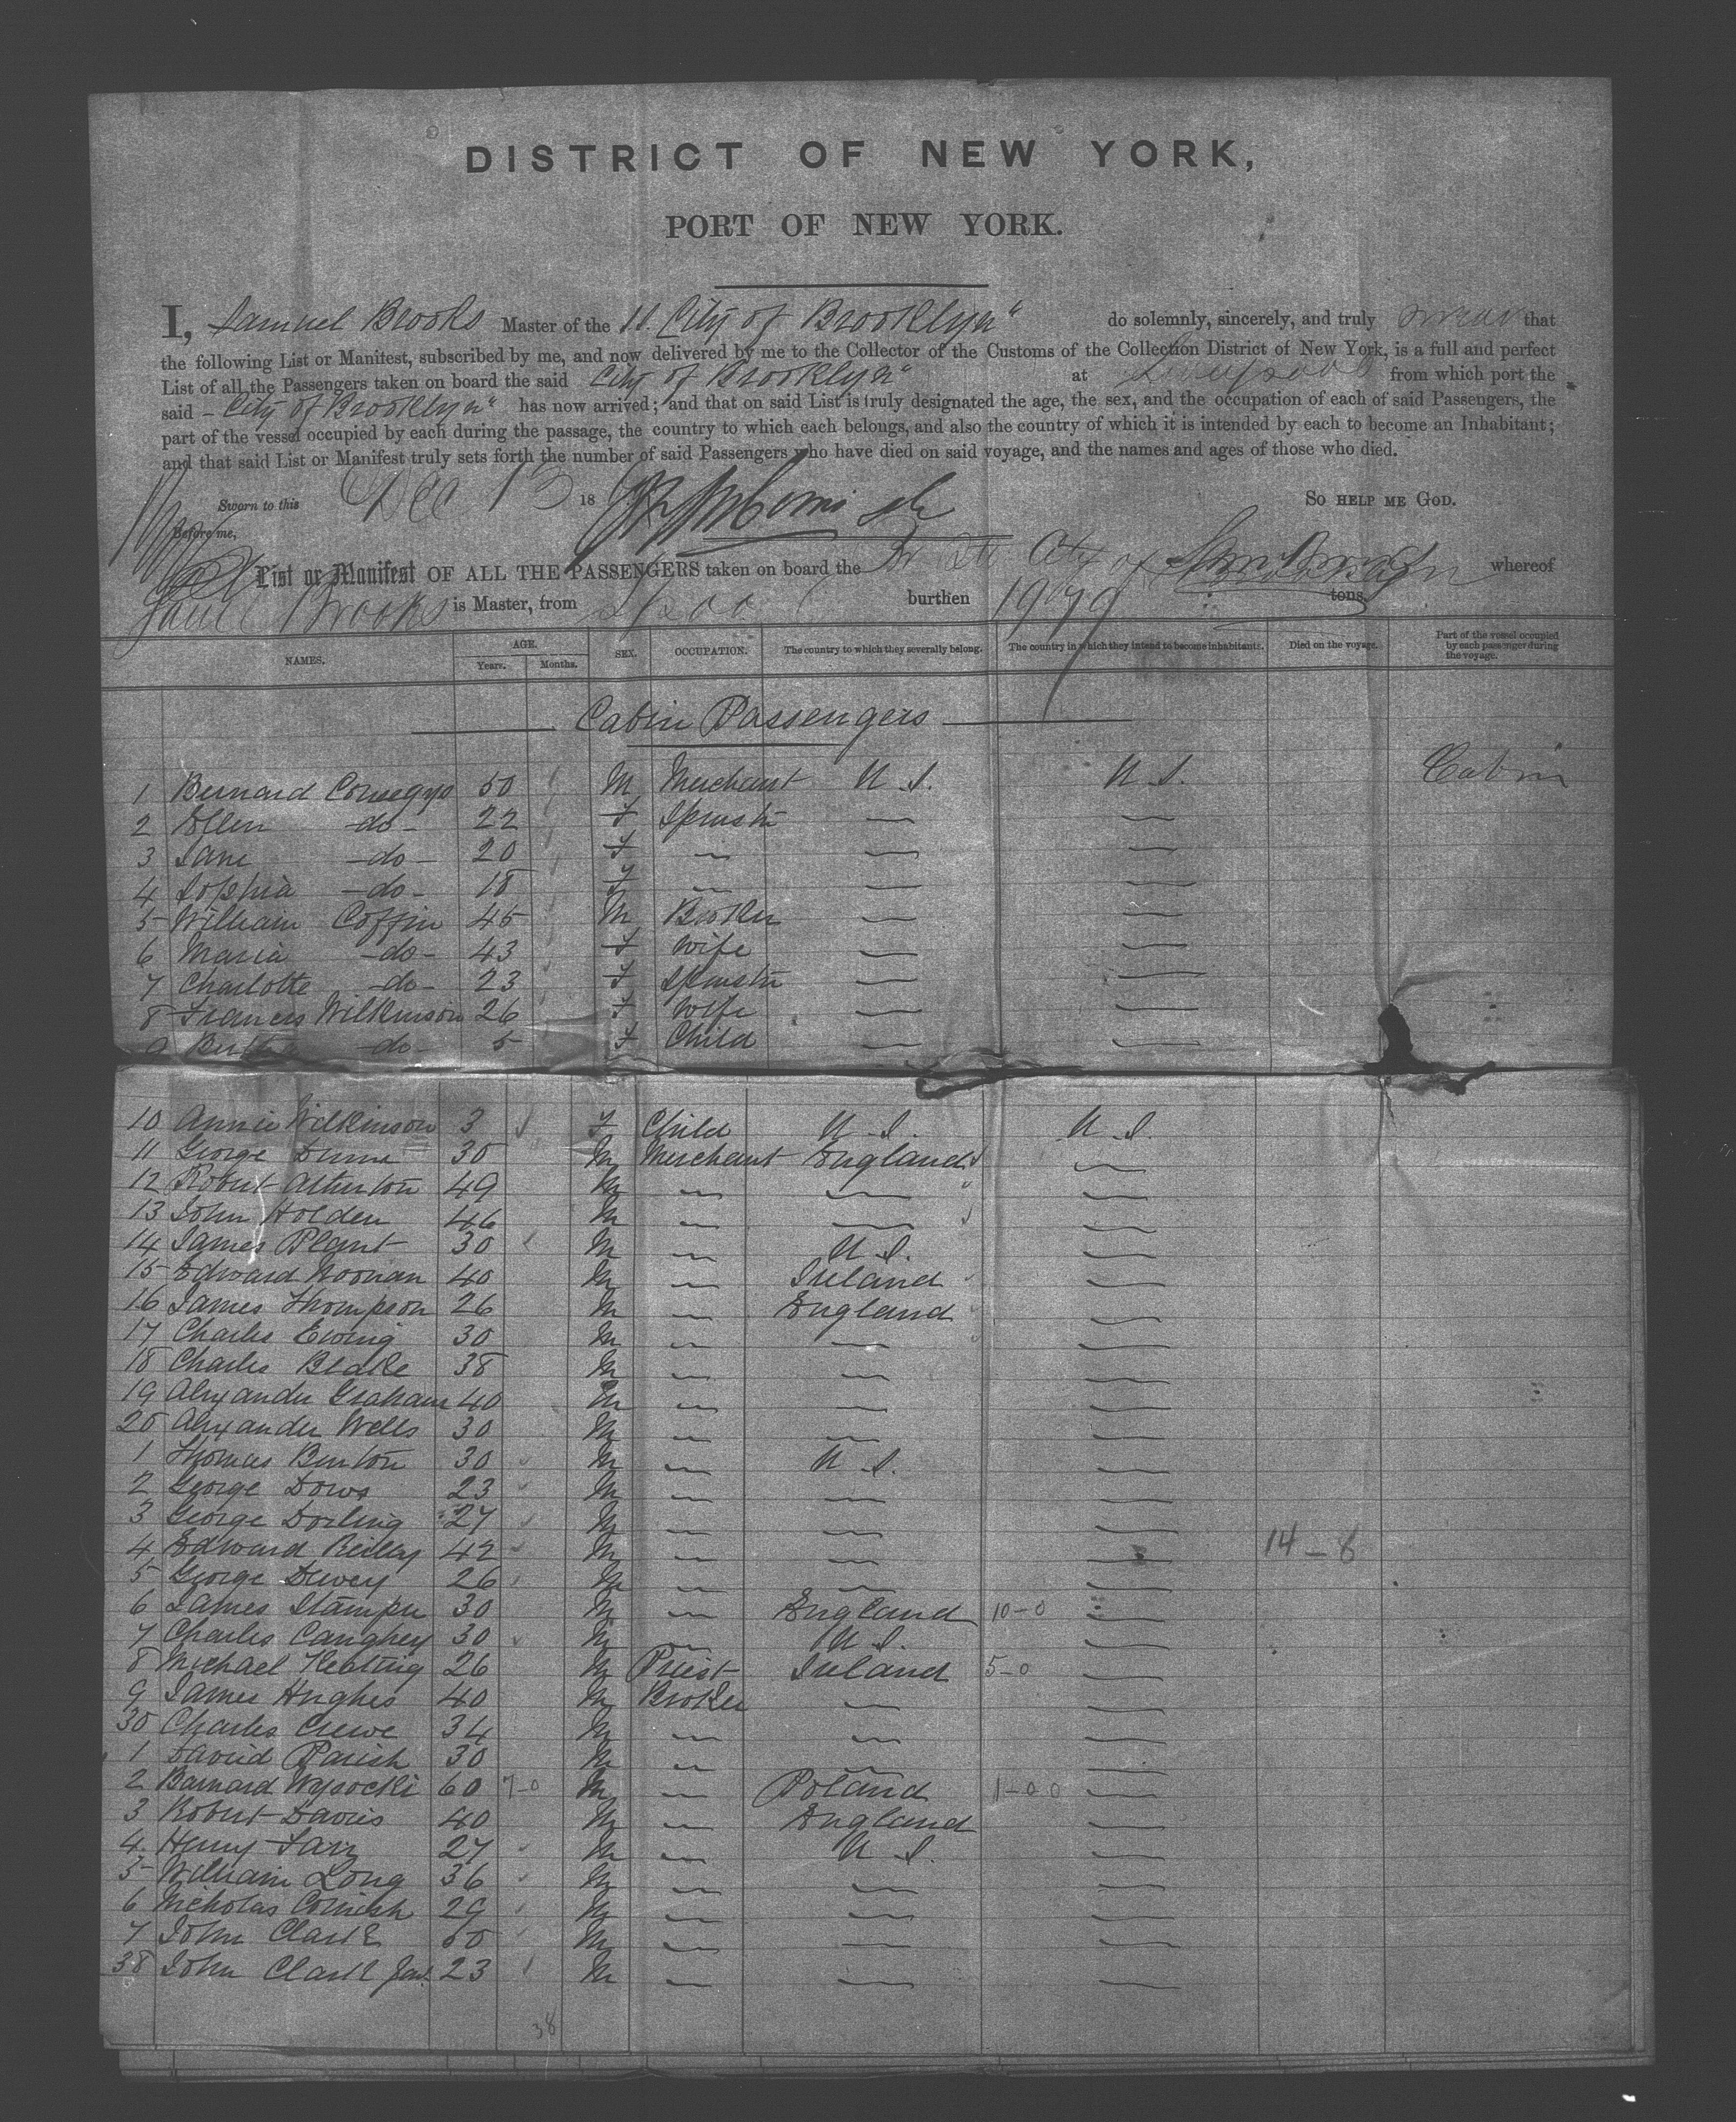 DISTRICT OF NEW YORK,
PORT OF NEW YORK.
I, Samuel Brooks Master of the SS. "City of Brooklyn" do solemnly, sincerely, and truly swear that
the following List or Manifest, subscribed by me, and now delivered by me to the Collector of the Customs of the Collection District of New York, is a full and perfect
List of all the Passengers taken on board the said "City of Brooklyn" at Liverpool from which port the
said "City of Brooklyn" has now arrived; and that on said List is truly designated the age, the sex, and the occupation of each of said Passengers, the
part of the vessel occupied by each during the passage, the country to which each belongs, and also the country of which it is intended by each to become an Inhabitant;
and that said List or Manifest truly sets forth the number of said Passengers who have died on said voyage, and the names and ages of those who died.
Sworn to this Dec 13 18 SO HELP ME GOD.
Before me,
List or Manifest OF ALL THE PASSENGERS taken on board the City of whereof
Saml Brooks is Master, from L'pool burthen tons.
NAMES. AGE. Years. Months. SEX. OCCUPATION. The country to which they severally belong. The country in which they intend to become inhabitants. Died on the voyage. Part of the vessel occupied by each passenger during the voyage.
Cabin Passengers
1 Bernard Comegys 50 M Merchant U S. U S. Cabin
2 Ellen -do- 22 F Spinstr — —
3 Jane -do- 20 F — — —
4 Sophia -do- 18 F — — —
5 William Coffin 45 M Broker — —
6 Maria -do- 43 F Wife — —
7 Charlotte -do- 23 F Spinstr — —
8 Frances Wilkinson 26 F Wife — —
9 Bertha -do- 5 F Child — —
10 Annie Wilkinson 3 F Child U S. U S.
11 George Dunn 30 M Merchant England —
12 Robert Atherton 49 M — — —
13 John Holden 46 M — — —
14 James Plant 30 M — U S. —
15 Edward Noonan 40 M — Ireland —
16 James Thompson 26 M — England —
17 Charles Ewing 30 M — — —
18 Charles Blake 38 M — — —
19 Alexander Graham 40 M — — —
20 Alexander Wells 30 M — — —
1 Thomas Benton 30 M — U S. —
2 George Dows 23 M — — —
3 George Dorling 27 M — — —
4 Edward Reilly 42 M — — — 14-8
5 George Dewey 26 M — — —
6 James Stamper 30 M — England 10-0 —
7 Charles Caughey 30 M — U S. —
8 Michael Keating 26 M Priest Ireland 5-0 —
9 James Hughes 40 M Broker — —
30 Charles Crewe 34 M — — —
1 David Parish 30 M — — —
2 Barnard Wysocki 60 7-0 M — Poland 1-00 —
3 Robert Davies 40 M — England —
4 Henry 27 M — U S. —
5 William Long 36 M — — —
6 Nicholas Cornish 29 M — — —
7 John Clark M — — —
38 John Clark Jnr. 23 M — — —
38